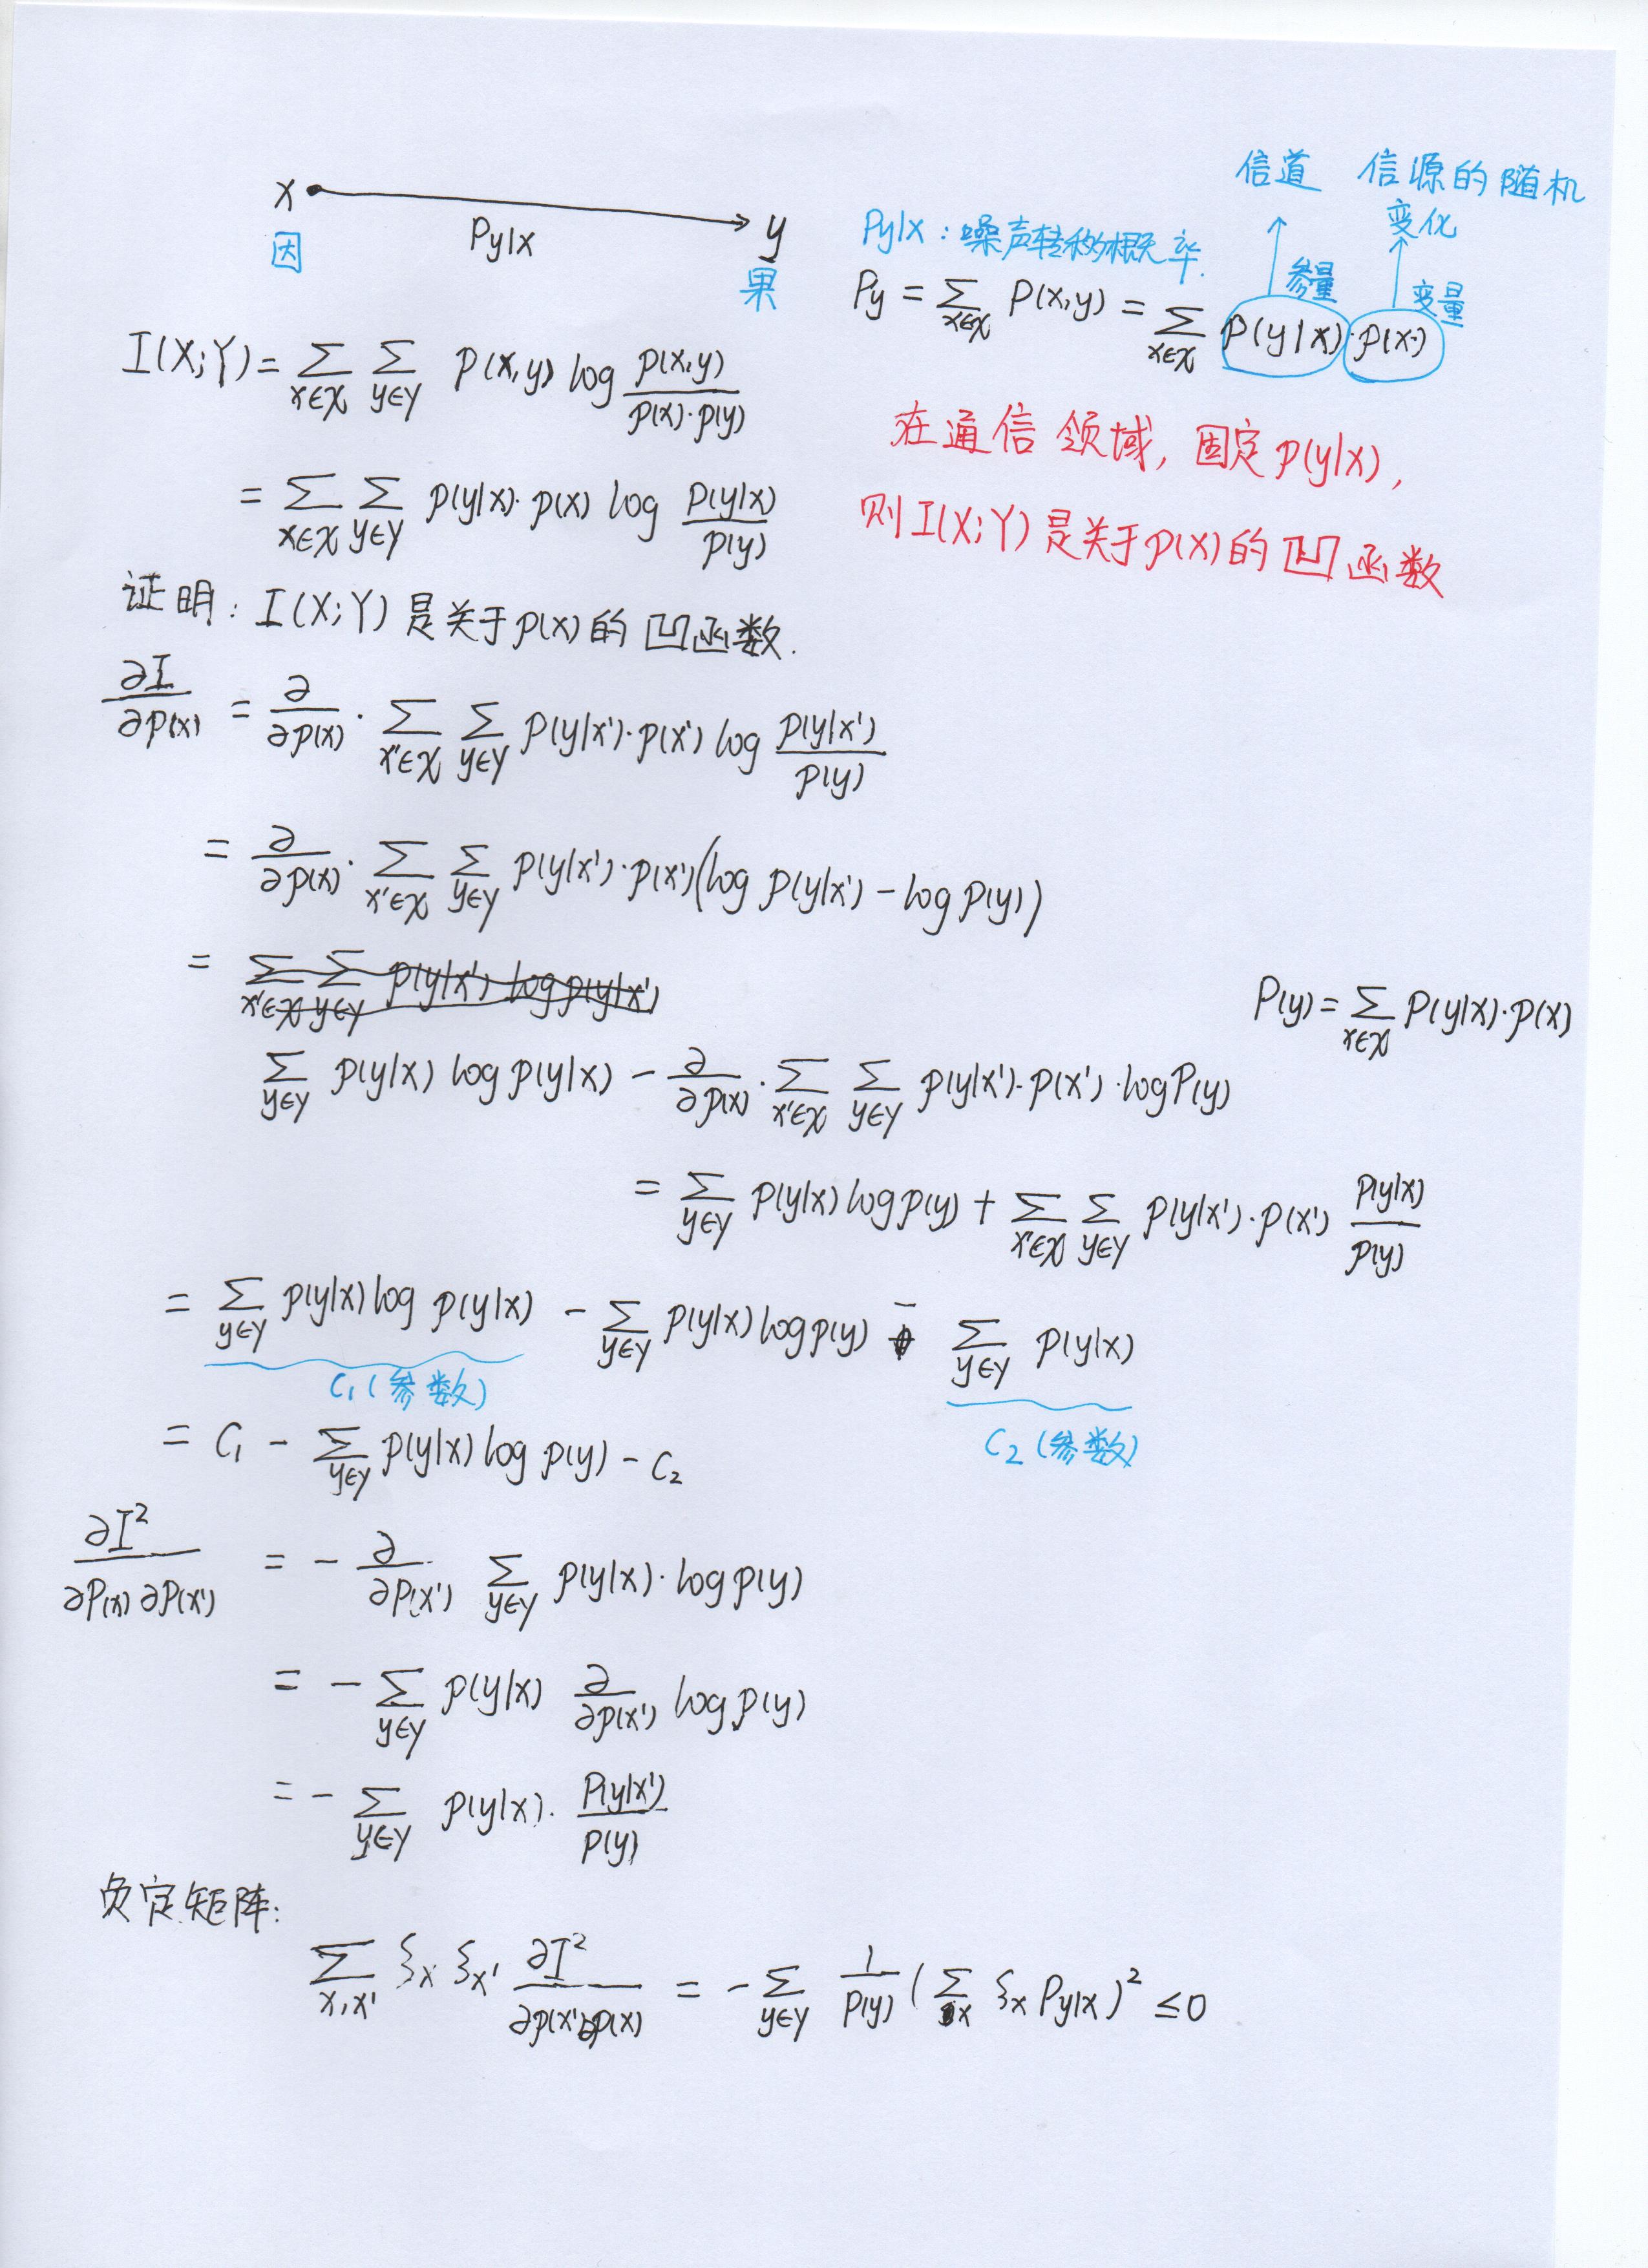 信道 信源的随机
变化
X → y
Py|x
因
果
Py|x：噪声转移的概率.
参量
变量
Py = ∑_{x∈X} P(x,y) = ∑_{x∈X} P(y|x)·p(x)
I(X;Y) = ∑_{x∈X} ∑_{y∈Y} p(x,y) log p(x,y)/(p(x)·p(y))
在通信领域, 固定p(y|x),
= ∑_{x∈X} ∑_{y∈Y} p(y|x)·p(x) log p(y|x)/p(y)
则I(X;Y)是关于p(x)的凹函数
证明：I(X;Y)是关于p(x)的凹函数.
∂I/∂p(x) = ∂/∂p(x) · ∑_{x'∈X} ∑_{y∈Y} p(y|x')·p(x') log p(y|x')/p(y)
= ∂/∂p(x) · ∑_{x'∈X} ∑_{y∈Y} p(y|x')·p(x')(log p(y|x') - log p(y))
= ∑_{x'∈X} ∑_{y∈Y} p(y|x') log p(y|x')
P(y) = ∑_{x∈X} P(y|x)·p(x)
∑_{y∈Y} p(y|x) log p(y|x) - ∂/∂p(x) · ∑_{x'∈X} ∑_{y∈Y} p(y|x')·p(x')·log P(y)
= ∑_{y∈Y} p(y|x) log p(y) + ∑_{x'∈X} ∑_{y∈Y} p(y|x')·p(x') p(y|x)/p(y)
= ∑_{y∈Y} p(y|x) log p(y|x) - ∑_{y∈Y} p(y|x) log p(y) - ∑_{y∈Y} p(y|x)
C₁(参数)
C₂(参数)
= C₁ - ∑_{y∈Y} p(y|x) log p(y) - C₂
∂I²/∂P(x)∂P(x') = - ∂/∂P(x') ∑_{y∈Y} p(y|x)·log p(y)
= - ∑_{y∈Y} p(y|x) ∂/∂p(x') log p(y)
= - ∑_{y∈Y} p(y|x)· P(y|x')/P(y)
负定矩阵：
∑_{x,x'} ξx ξx' ∂I²/∂p(x')∂p(x) = - ∑_{y∈Y} 1/P(y) (∑_x ξx Py|x)² ≤ 0